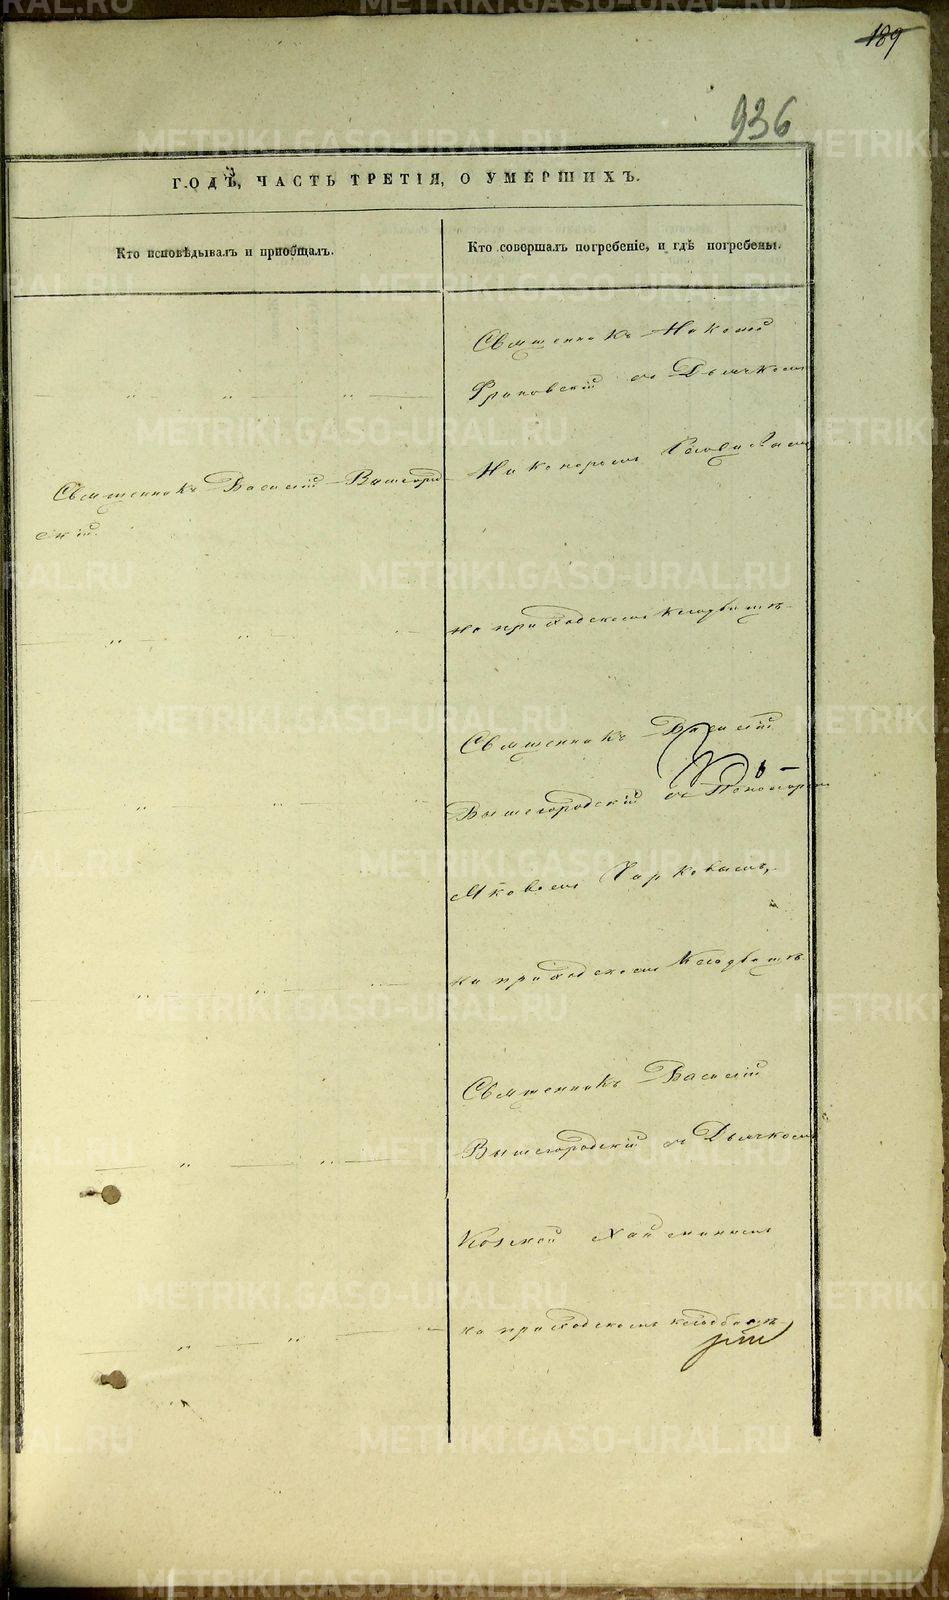 189
936
ГОДѢ, ЧАСТЬ ТРЕТІЯ, О УМЕРШИХЪ.
Кто исповѣдывалъ и пріобщалъ.
Кто совершалъ погребеніе, и гдѣ погребены.
Священникъ
съ Дьячкомъ
Никаноромъ
Священникъ Василій Вышгород
скій.
на приходскомъ кладбищѣ
Священникъ Василій
Вышегородскій съ Пономаремъ
Яковомъ
на приходскомъ кладбищѣ
Священникъ Василій
Вышегородскій съ Дьячкомъ
Козмой
на приходскомъ кладбищѣ
METRIKI.GASO-URAL.RU